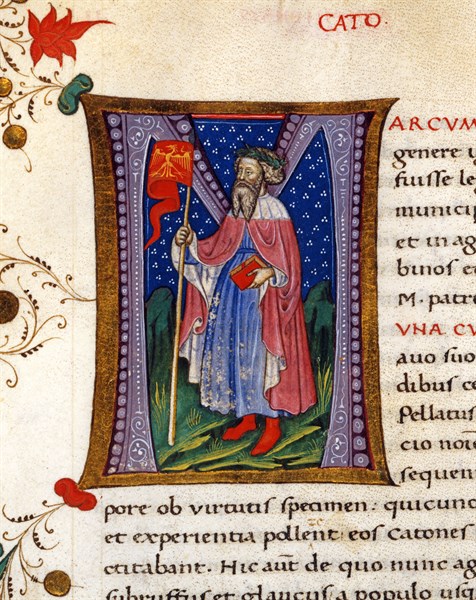 CATO.
MARCUM
genere
fuisse le
municip
et in ag
binos et
M. patri
VNA CV
avo suo
dibus co
Pellatus
cio nom
sequen
pore ob virtutis specimen: quicun
et experientia pollent: eos Catones
ctitabant. Hic aut̄ de quo nunc ag
subruffus et glaucus a populo usq